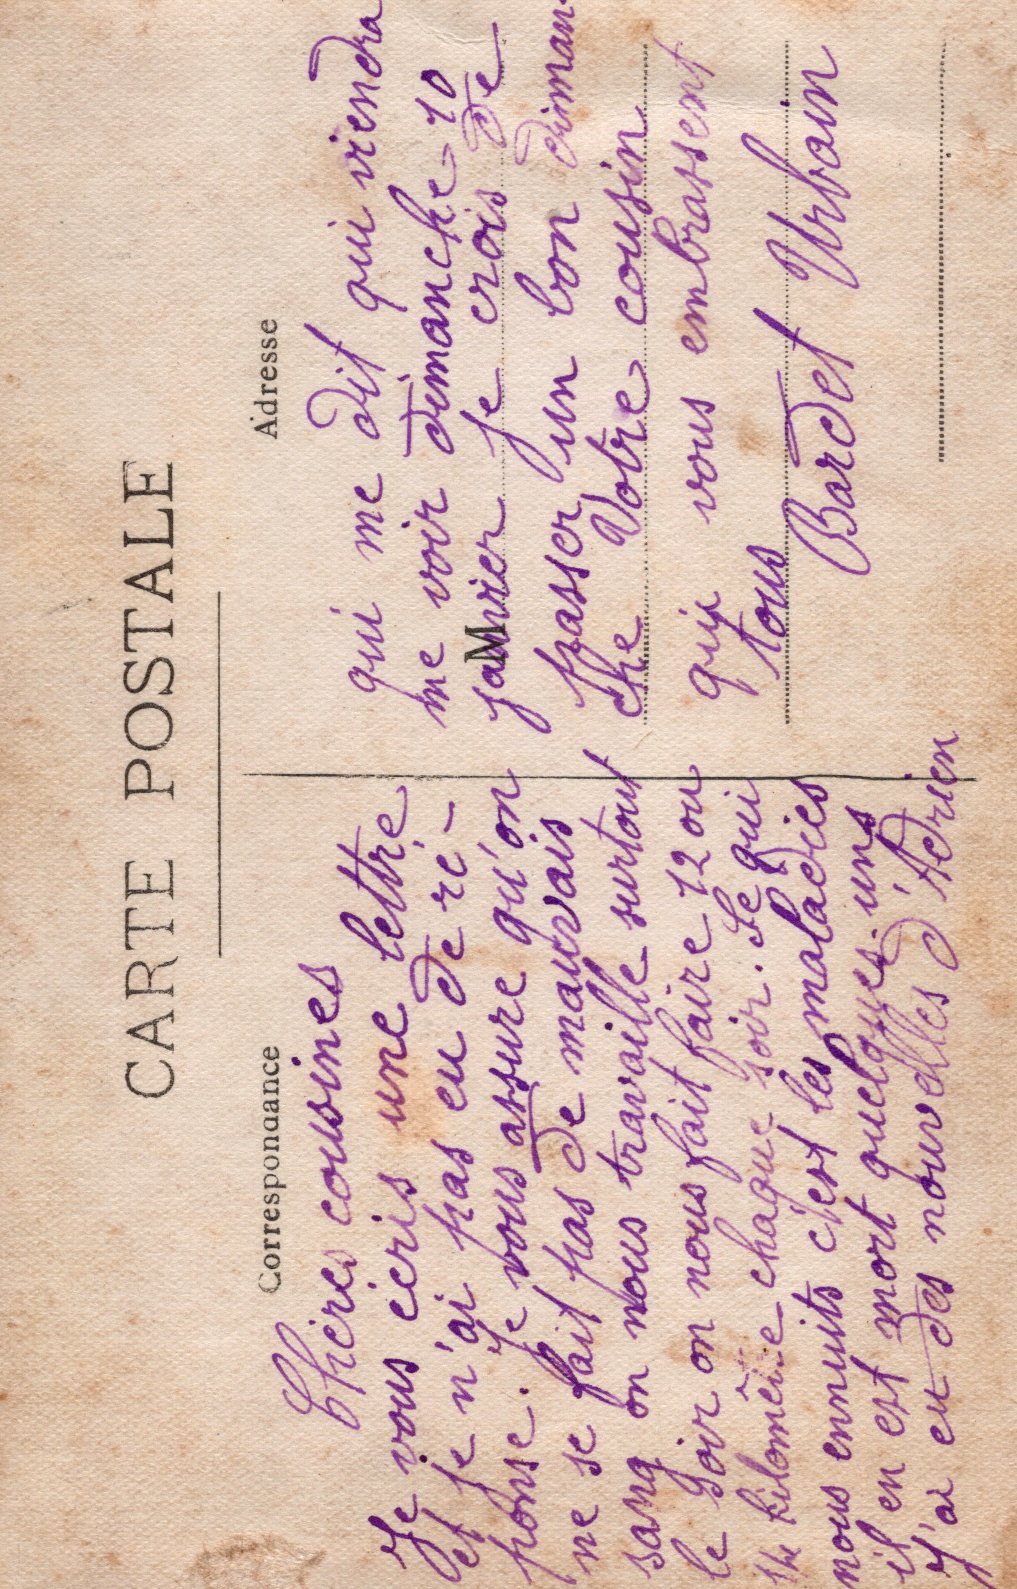 CARTE POSTALE
Correspondance
Chères cousines
Je vous écris une lettre
et je n'ai pas eu de ré-
ponse. Je vous assure qu'on
ne se fait pas de mauvais
sang on nous travaille surtout
le soir on nous fait faire 12 ou
kilomètre chaque soir. Se qui
nous ennuits c'est les maladies
il en est mort quelques. uns
J'ai eu des nouvelles d'Adrien
Adresse
qui me dit qui viendra
me voir dimanche 10
janvier je crois de
M
passer un bon diman-
che Votre cousin
qui vous embrassent
tous
Bardet Urbain